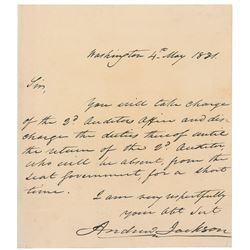 Washington 4th May 1831.
Sir,
You will take charge
of the 2d Auditors Office and dis-
charge the duties thereof until
the return of the 2d Auditor,
who will be absent, from the
seat government, for a short
time.
I am very respectfully
your obt Svt
Andrew Jackson